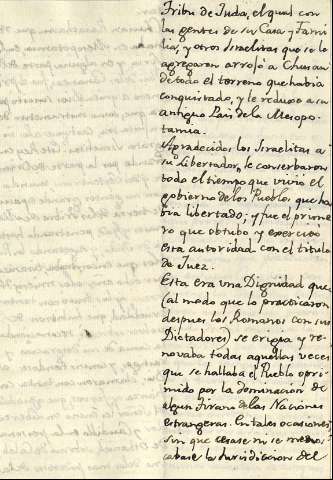 Tribu de Juda, el qual con
las gentes de su Casa y Fami
lia, y otros Israelitas que se le
agregaron arrojó a Chusan
de todo el terreno que habia
conquistado, y le reduxo a su
antiguo Pais de la Mesopo-
tamia.
Agradecidos los Israelitas a
su Libertador, le conserbaron
todo el tiempo que vivió el
gobierno de los Pueblos que ha
bia libertado; y fue el prime
ro que obtubo y exerció
esta autoridad con el titulo
de Juez.
Esta era una Dignidad que
(al modo que lo practicaron
despues los Romanos con sus
Dictadores) se erigia y re-
novaba todas aquellas veces
que se hallaba el Pueblo opri
mido por la dominacion de
algun Tirano de las Naciones
estrangeras. En tales ocasiones,
sin que cesase ni se menos
cabase la Jurisdiccion del